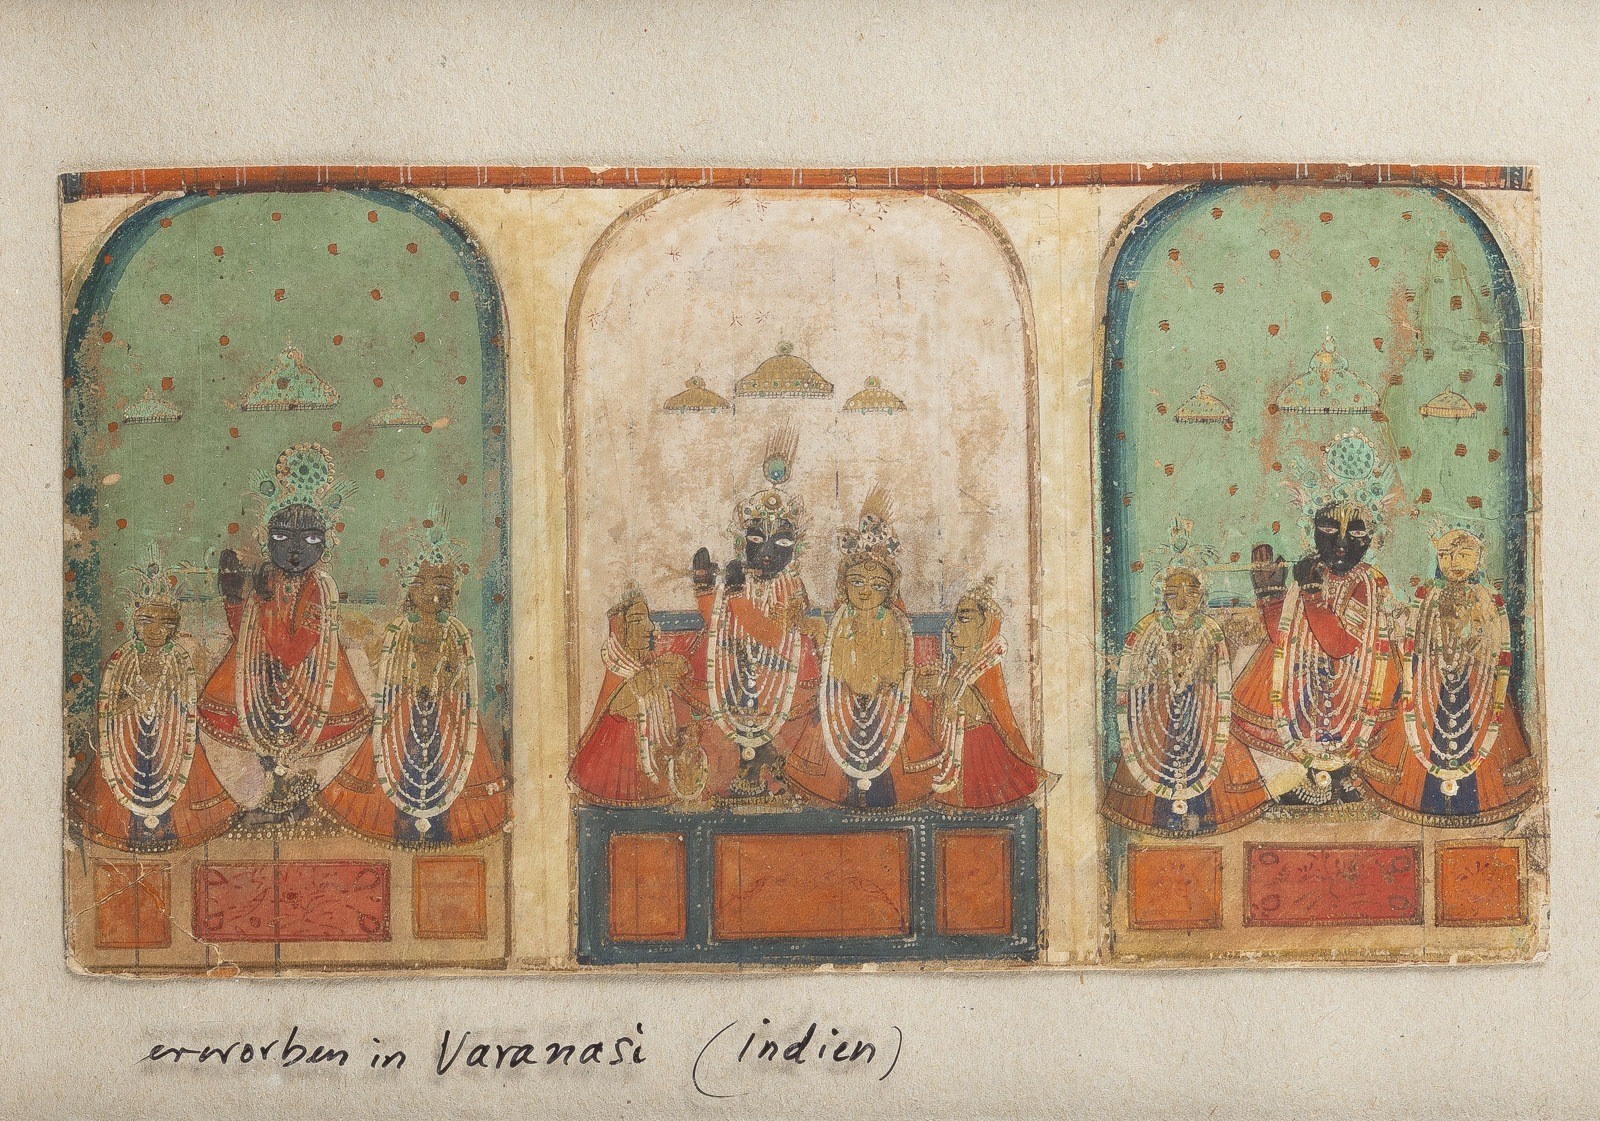 erworben in Varanasi (indien)